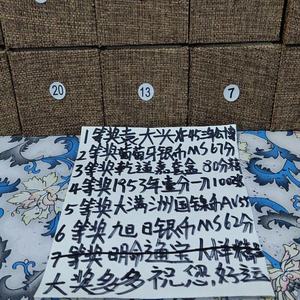 20 13 7
1等奖袁大头
2等奖葡萄牙银币MS67分
3等奖 80分
4等奖1953年壹分一刀100张
5等奖大满洲国镍币MS
6等奖九日银币MS62分
7等奖明命通宝大样
大奖多多祝您好运